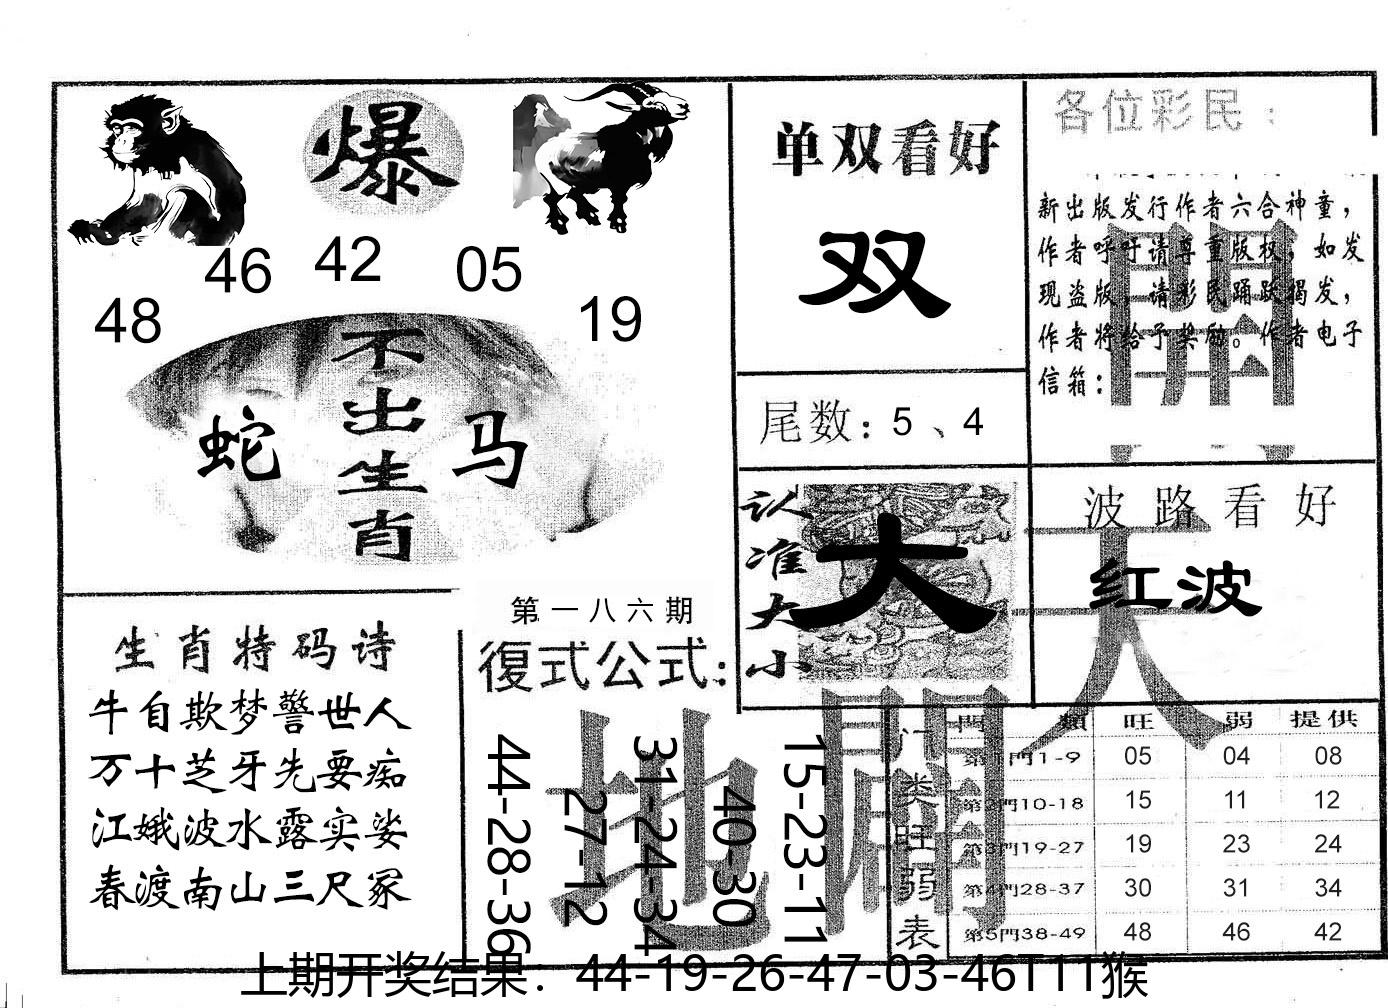 爆
46 42 05
48 19
不出生肖
蛇 马
单双看好
双
尾数：5、4
各位彩民：
新出版发行作者六合神童，
作者呼吁请尊重版权，如发
现盗版，请彩民踊跃揭发，
作者将给予奖励。作者电子
信箱：
認准大小
大
波路看好
红波
生肖特码诗
牛自欺梦警世人
万十芝牙先要痴
江娥波水露实娑
春渡南山三尺冢
第一八六期
復式公式：
44-28-36
27-12
31-24-34
40-30
15-23-11
天
開
地
門类旺弱表
門類 旺 弱 提供
第1門1-9 05 04 08
第2門10-18 15 11 12
第3門19-27 19 23 24
第4門28-37 30 31 34
第5門38-49 48 46 42
上期开奖结果：44-19-26-47-03-46T11猴